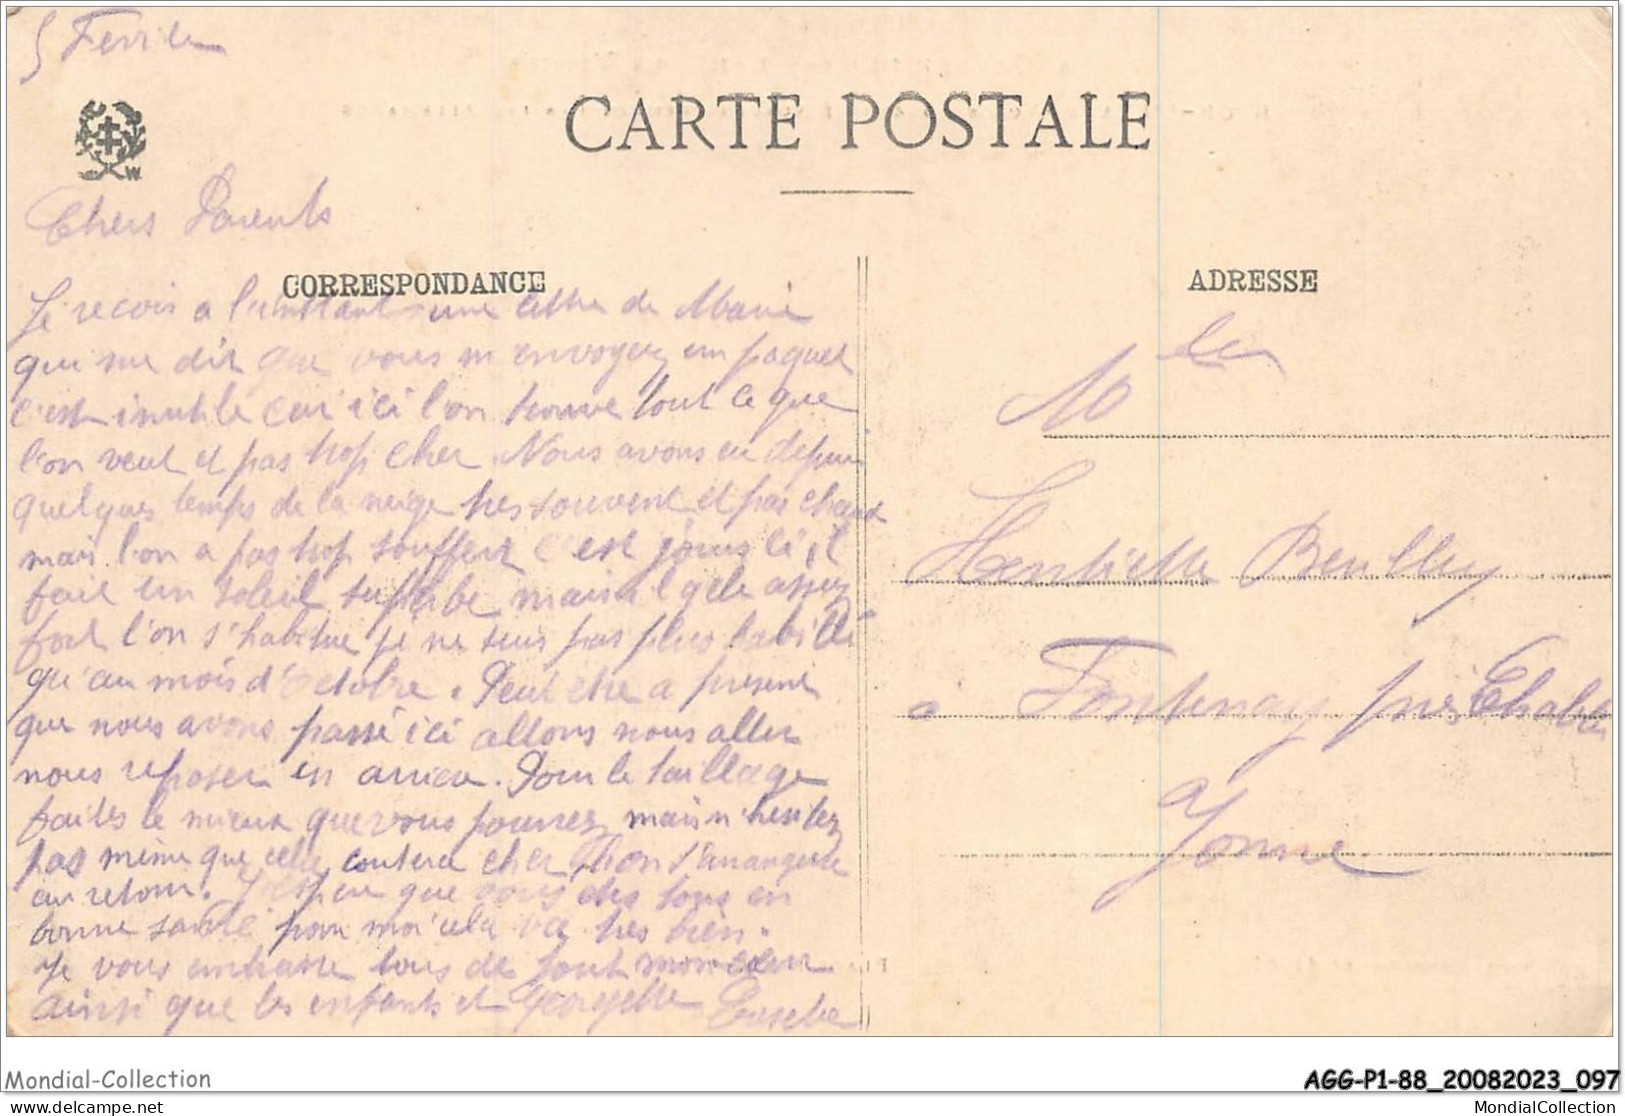 5 Fevrier
CARTE POSTALE
W
Chers Parents
CORRESPONDANCE
Je recois a l'instant une lettre de Marie
qui me dit que vous m'envoyez un paquet
c'est inutile car ici l'on trouve tout ce que
l'on veut et pas trop cher. Nous avons eu depuis
quelques temps de la neige tres souvent et pas chaud
mais l'on a pas trop souffert c'est jours ci il
fait un soleil superbe mais il gele assez
fort l'on s'habitue je ne suis pas plus habillé
qu'au mois d'Octobre. Peut etre a present
que nous avons passé ici allons nous aller
nous reposer en arriere. Pour le taillage
faites le mieux que vous pourrez mais n'hesitez
pas même que cela coutera cher l'on s'arrangera
au retour. J'espere que vous etes tous en
bonne santé pour moi cela va tres bien.
Je vous embrasse tous de tout mon coeur
ainsi que les enfants et Georgette Eusebe
ADRESSE
Melle
Henriette
à Fontenay près Chablis
Yonne
Mondial-Collection
AGG-P1-88_20082023_097
delcampe.net
MondialCollection